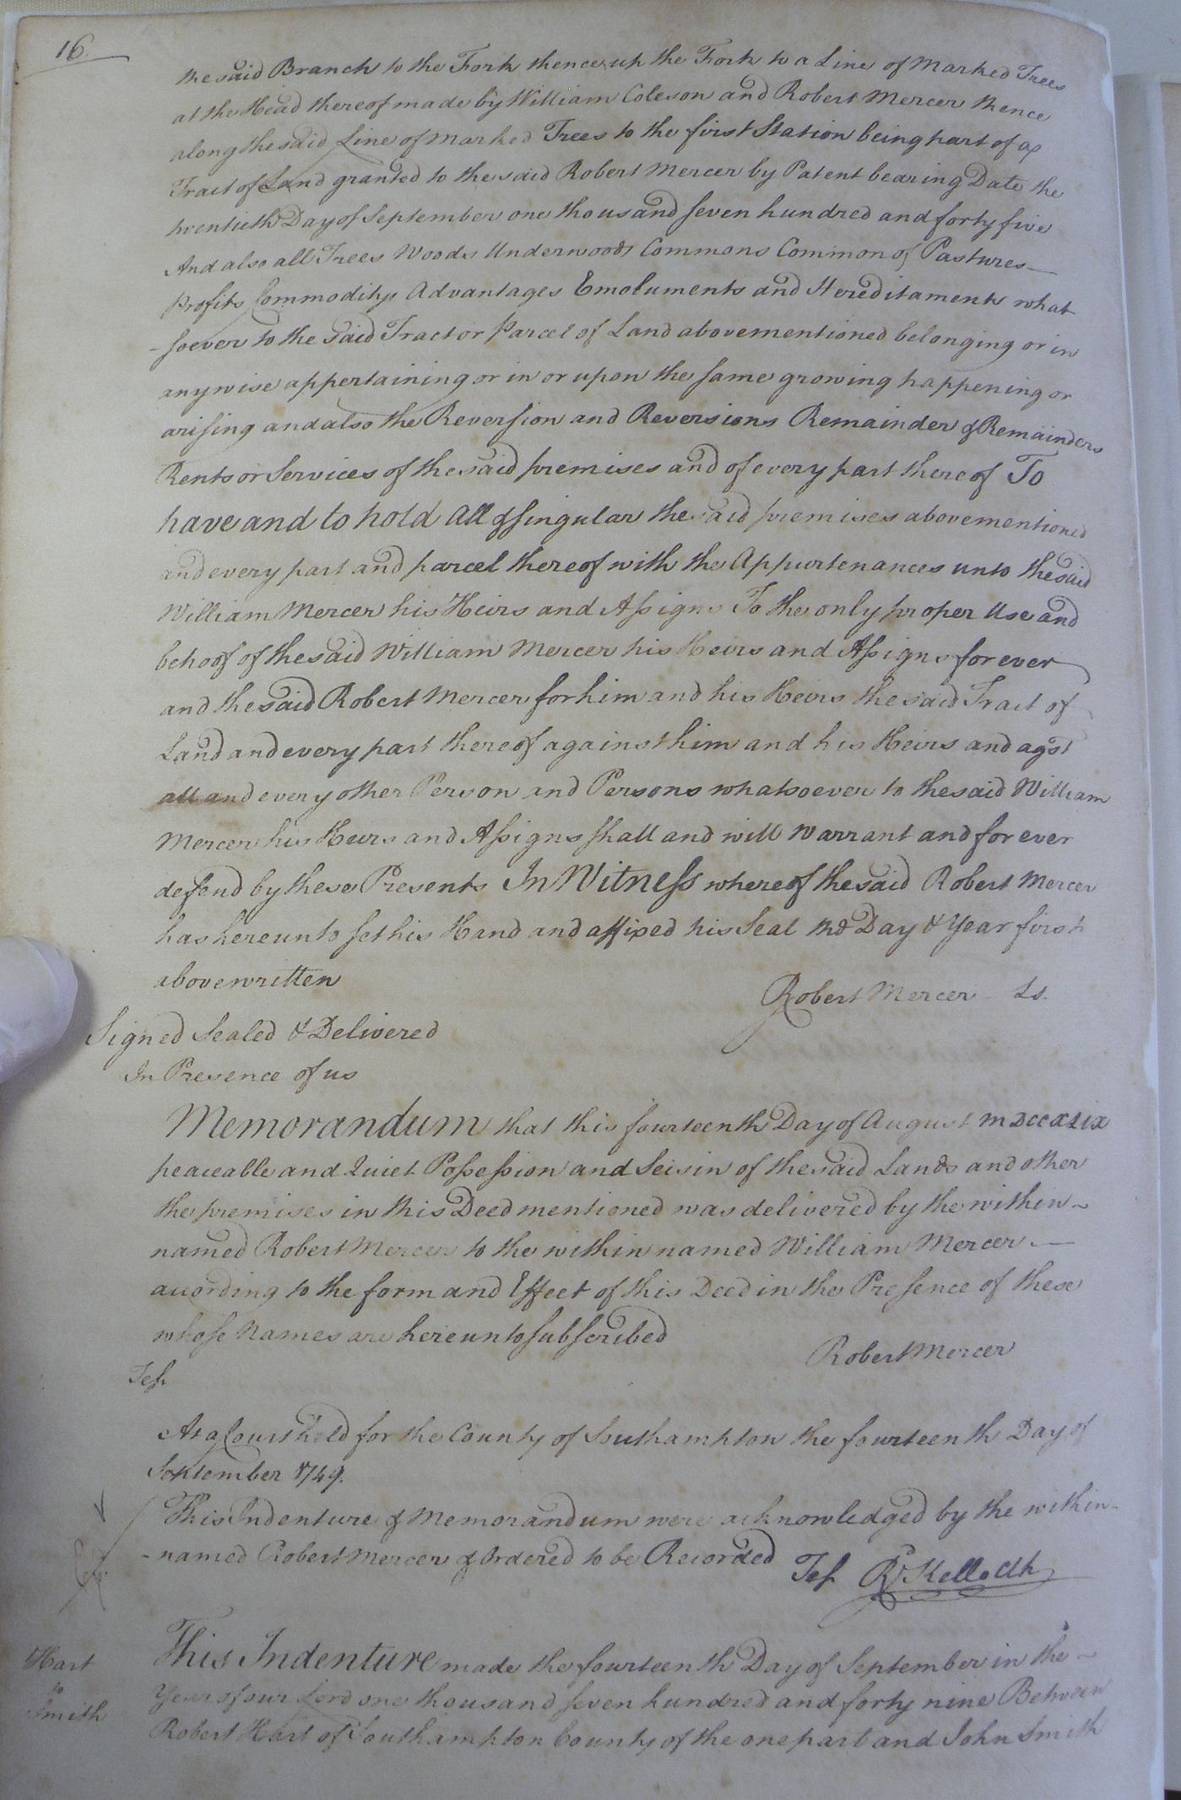 16
the said Branch to the Fork thence up the Fork to a Line of Marked Trees
at the Head thereof made by William Coleson and Robert Mercer thence
along the said Line of Marked Trees to the first Station being part of a
Tract of Land granted to the said Robert Mercer by Patent bearing Date the
twentieth Day of September one thousand seven hundred and forty five
And also all Trees Woods Underwoods Commons Common of Pastures
Profits Commoditys Advantages Emoluments and Hereditaments what
-soever to the said Tract or Parcel of Land abovementioned belonging or in
anywise appertaining or in or upon the same growing happening or
arising and also the Reversion and Reversions Remainder & Remainders
Rents or Services of the said premises and of every part thereof To
have and to hold All & singular the said premises abovementioned
and every part and parcel thereof with the Appurtenances unto the said
William Mercer his Heirs and Assigns To the only proper Use and
behoof of the said William Mercer his Heirs and Assigns for ever
and the said Robert Mercer for him and his Heirs the said Tract of
Land and every part thereof against him and his Heirs and agst
all and every other Person and Persons whatsoever to the said William
Mercer his Heirs and Assigns shall and will Warrant and for ever
defend by these Presents In Witness whereof the said Robert Mercer
has hereunto set his Hand and affixed his Seal the Day & Year first
above written
Robert Mercer Ls.
Signed Sealed & Delivered
In Presence of us
Memorandum that this fourteenth Day of August MDCCXLIX
peaceable and Quiet Possession and Seisin of the said Lands and other
the premises in this Deed mentioned was delivered by the within
named Robert Mercer to the within named William Mercer
acording to the form and Effect of this Deed in the Presence of these
whose Names are hereunto subscribed
Robert Mercer
Test
At a Court held for the County of Southampton the fourteenth Day of
September 1749.
This Indenture & Memorandum were acknowledged by the within-
-named Robert Mercer & Ordered to be Recorded
Test R Kello Clk
Hart
to
Smith
This Indenture made the fourteenth Day of September in the
Year of our Lord one thousand seven hundred and forty nine Between
Robert Hart of Southampton County of the one part and John Smith